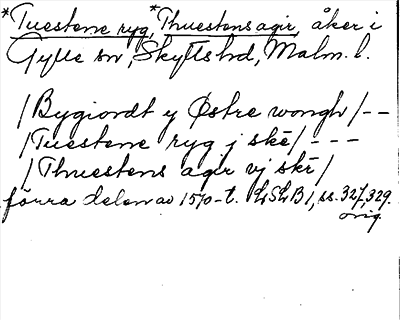 *Tuestene ryg, *Thuestens agir, åker i
Gylle sn, Skytts hd, Malm. l.
/Bygiordt y Østre wongh/--
/Tuestene ryg j skē/---
/Thuestens agir vj skē/
förra delen av 1570-t. LSLB1, ss. 327, 329.
orig.